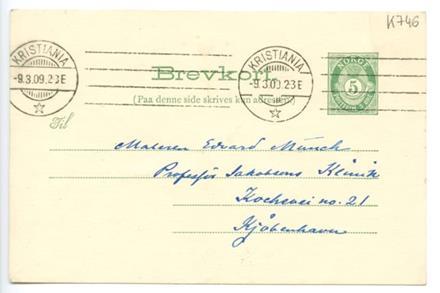 K746
KRISTIANIA
-9.3.09.23E
KRISTIANIA
-9.3.09.23E
NORGE
5
Brevkort.
(Paa denne side skrives kun adressen)
Til
Maleren Edvard Munch
Professor Jakobsens Klinik
Kochsvei no. 21
Kjøbenhavn